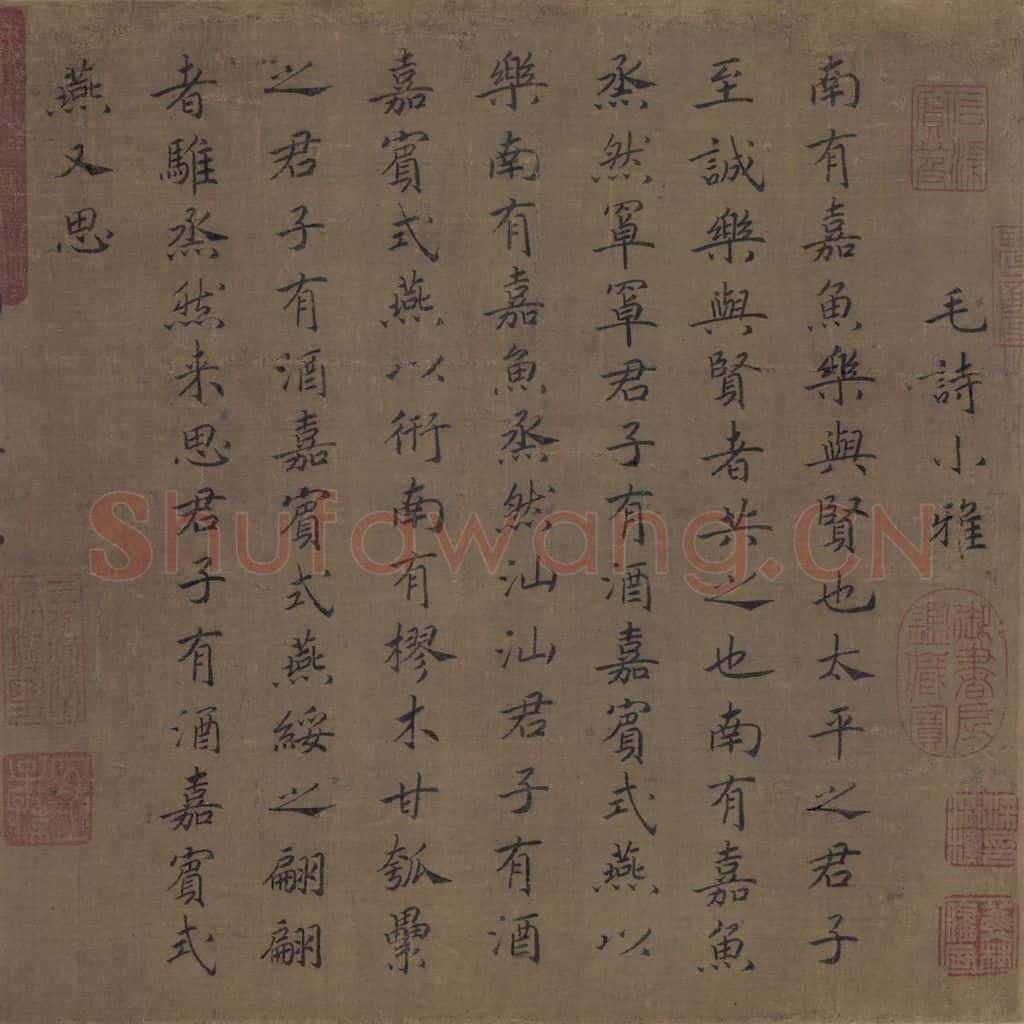 毛詩小雅
南有嘉魚樂與賢也太平之君子
至誠樂與賢者共之也南有嘉魚
烝然罩罩君子有酒嘉賓式燕以
樂南有嘉魚烝然汕汕君子有酒
嘉賓式燕以衎南有樛木甘瓠纍
之君子有酒嘉賓式燕綏之翩翩
者鵻烝然来思君子有酒嘉賓式
燕又思
御書房鑑藏寶
Shufawang.CN